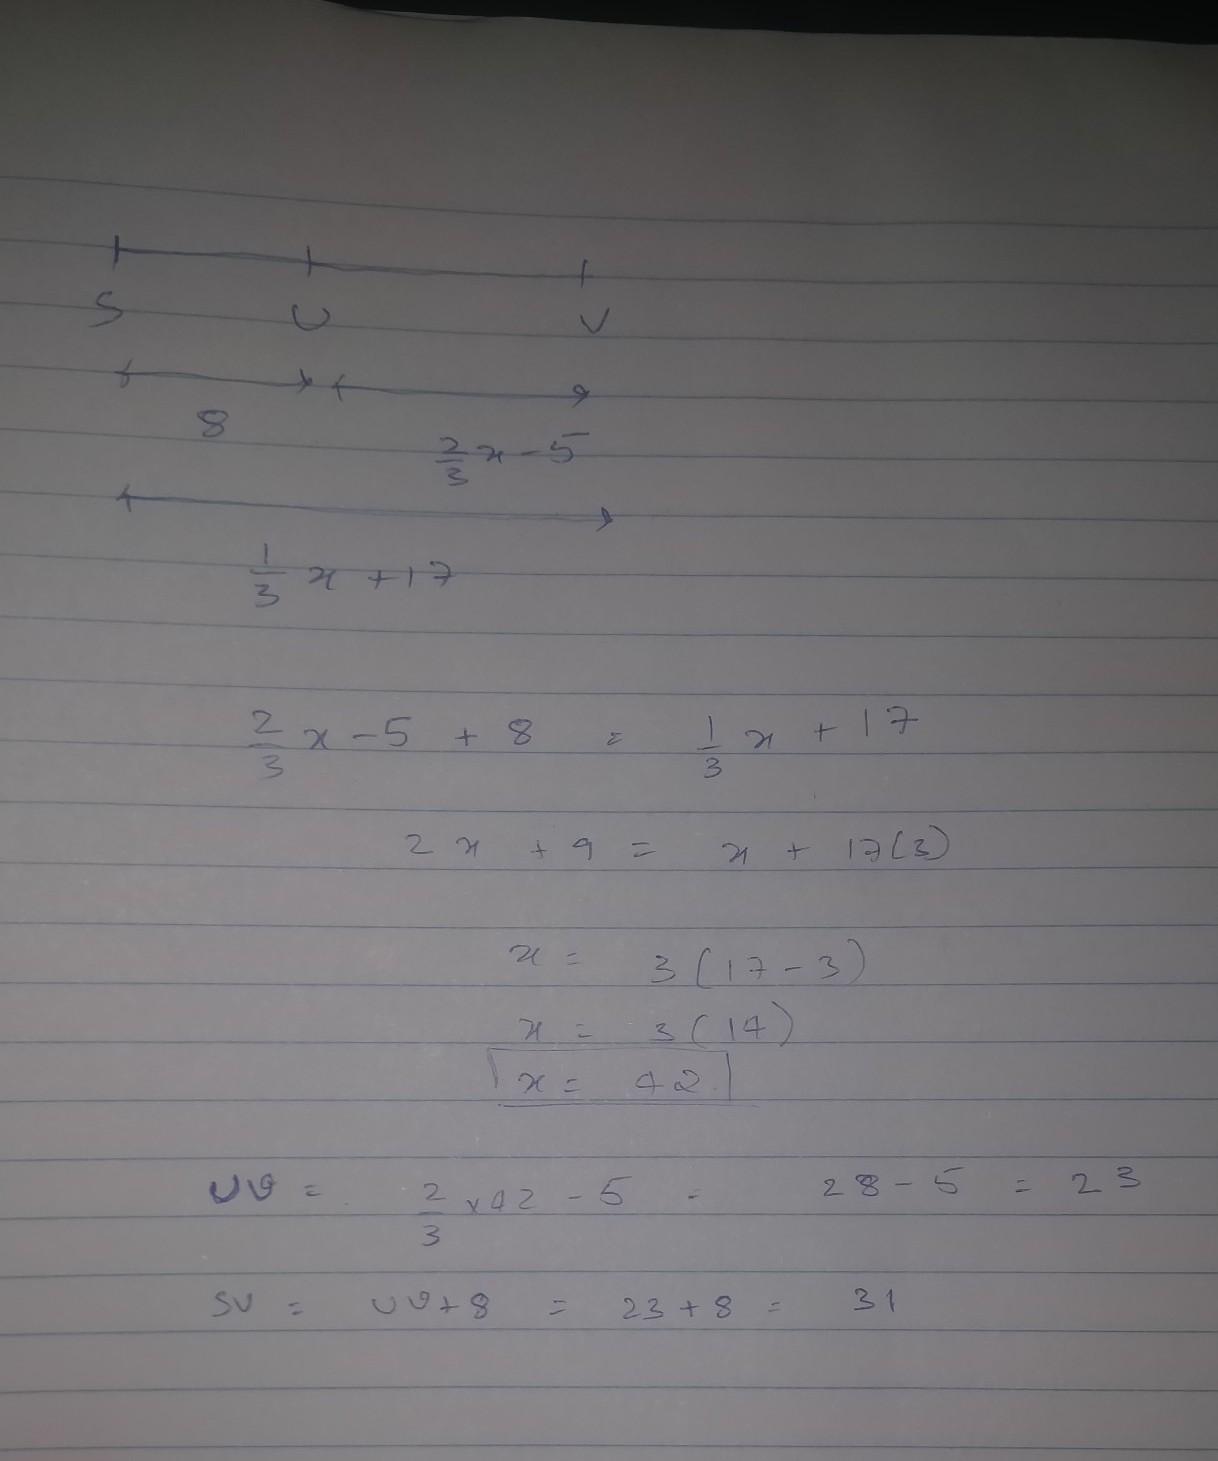 S U V
8
2/3 x - 5
1/3 x + 17
2/3 x - 5 + 8 = 1/3 x + 17
2x + 9 = x + 17(3)
x = 3(17-3)
x = 3(14)
x = 42
UV = 2/3 x 42 - 5 = 28 - 5 = 23
SV = UV + 8 = 23 + 8 = 31